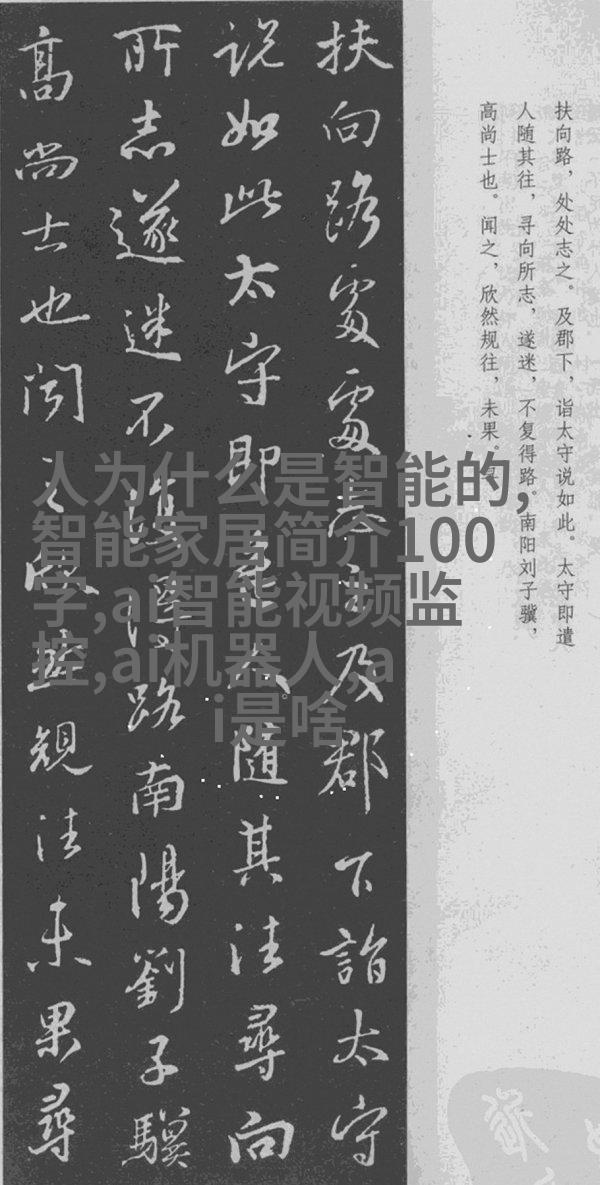 扶向路處處志之及郡下詣太守
説如此太守即遣人隨其往尋向
所志遂迷不復得路南陽劉子驥
高尚士也聞之欣然規往未果尋
扶向路，处处志之。及郡下，诣太守说如此。太守即遣
人随其往，寻向所志，遂迷，不复得路。南阳刘子骥，
高尚士也。闻之，欣然规往，未果。寻
人为什么是智能的,
智能家居简介100
字,ai智能视频监
控,ai机器人,a
i是啥